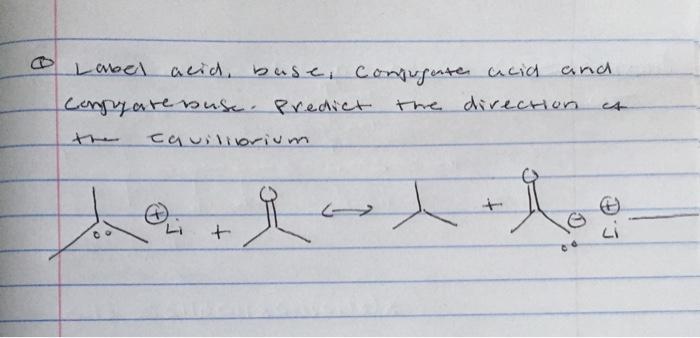 ① Label acid, base, conjugate acid and
conjugate base. Predict the direction of
the equilibrium
O O
⊕ Li + ↔ + ⊖ ⊕ Li